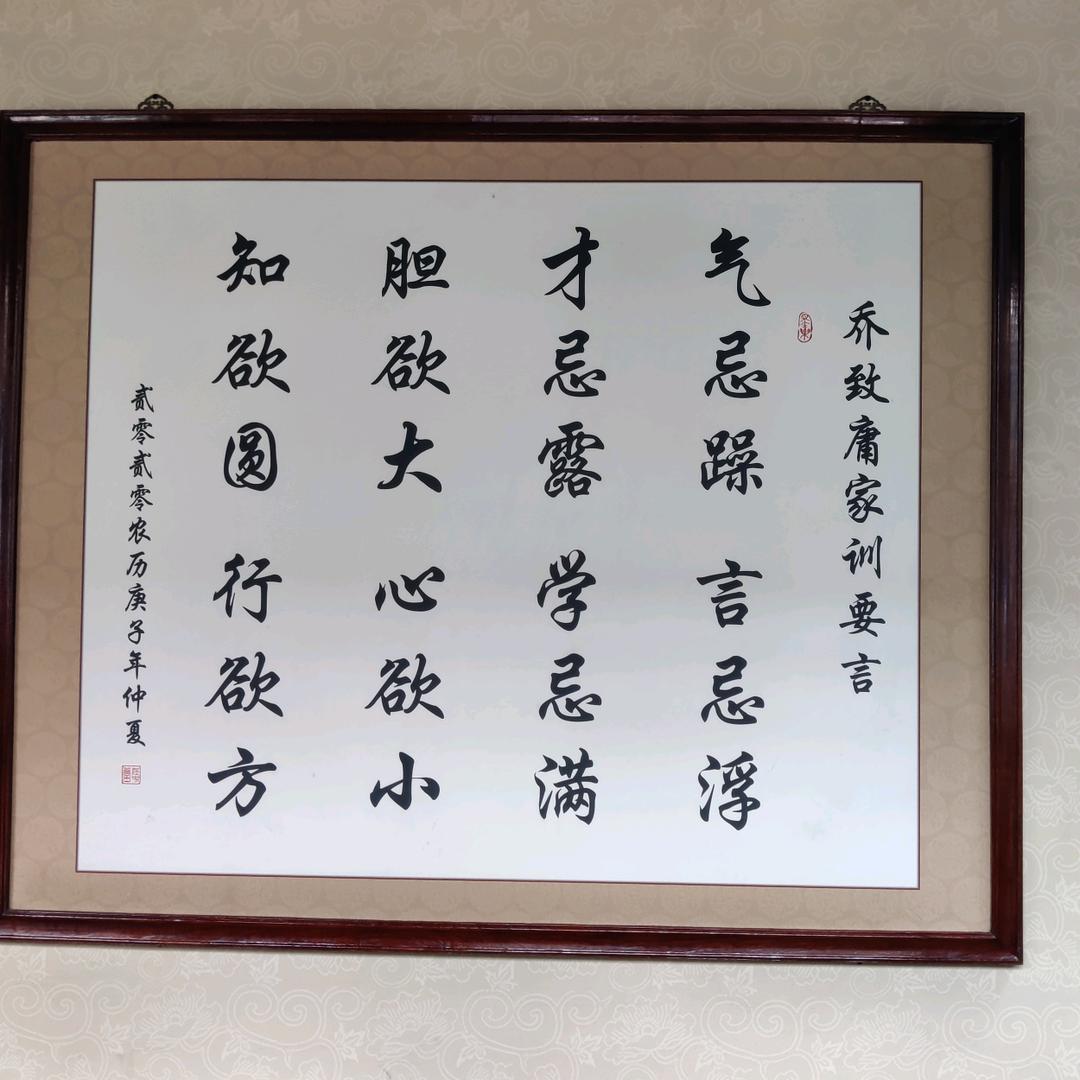 乔致庸家训要言
气忌躁 言忌浮
才忌露 学忌满
胆欲大 心欲小
知欲圆 行欲方
贰零贰零农历庚子年仲夏